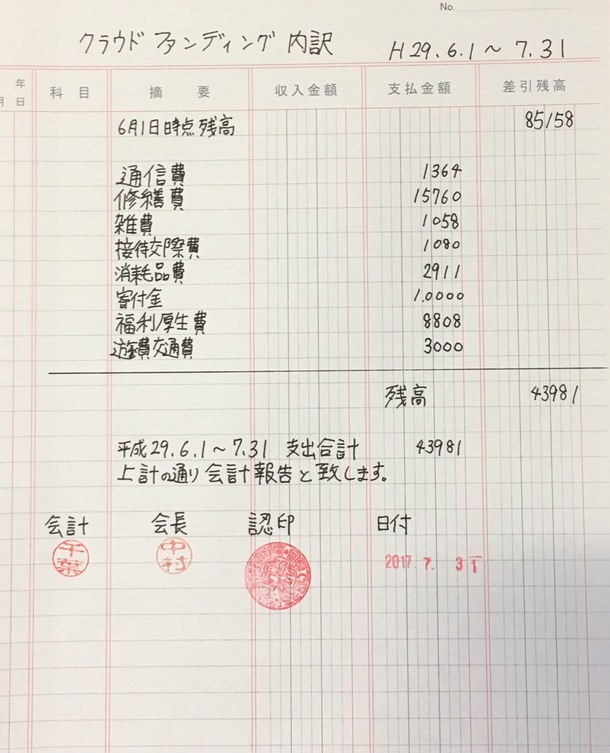 No.
クラウド ファンディング 内訳 H29.6.1～7.31
年
月 日 科目 摘要 収入金額 支払金額 差引残高
6月1日時点残高 85158
通信費 1364
修繕費 15760
雑費 1058
接待交際費 1080
消耗品費 2911
寄付金 1.0000
福利厚生費 8808
交通費 3000
残高 43981
平成29.6.1～7.31 支出合計 43981
上計の通り会計報告と致します。
会計 会長 認印 日付
千葉 中村 2017.7.31